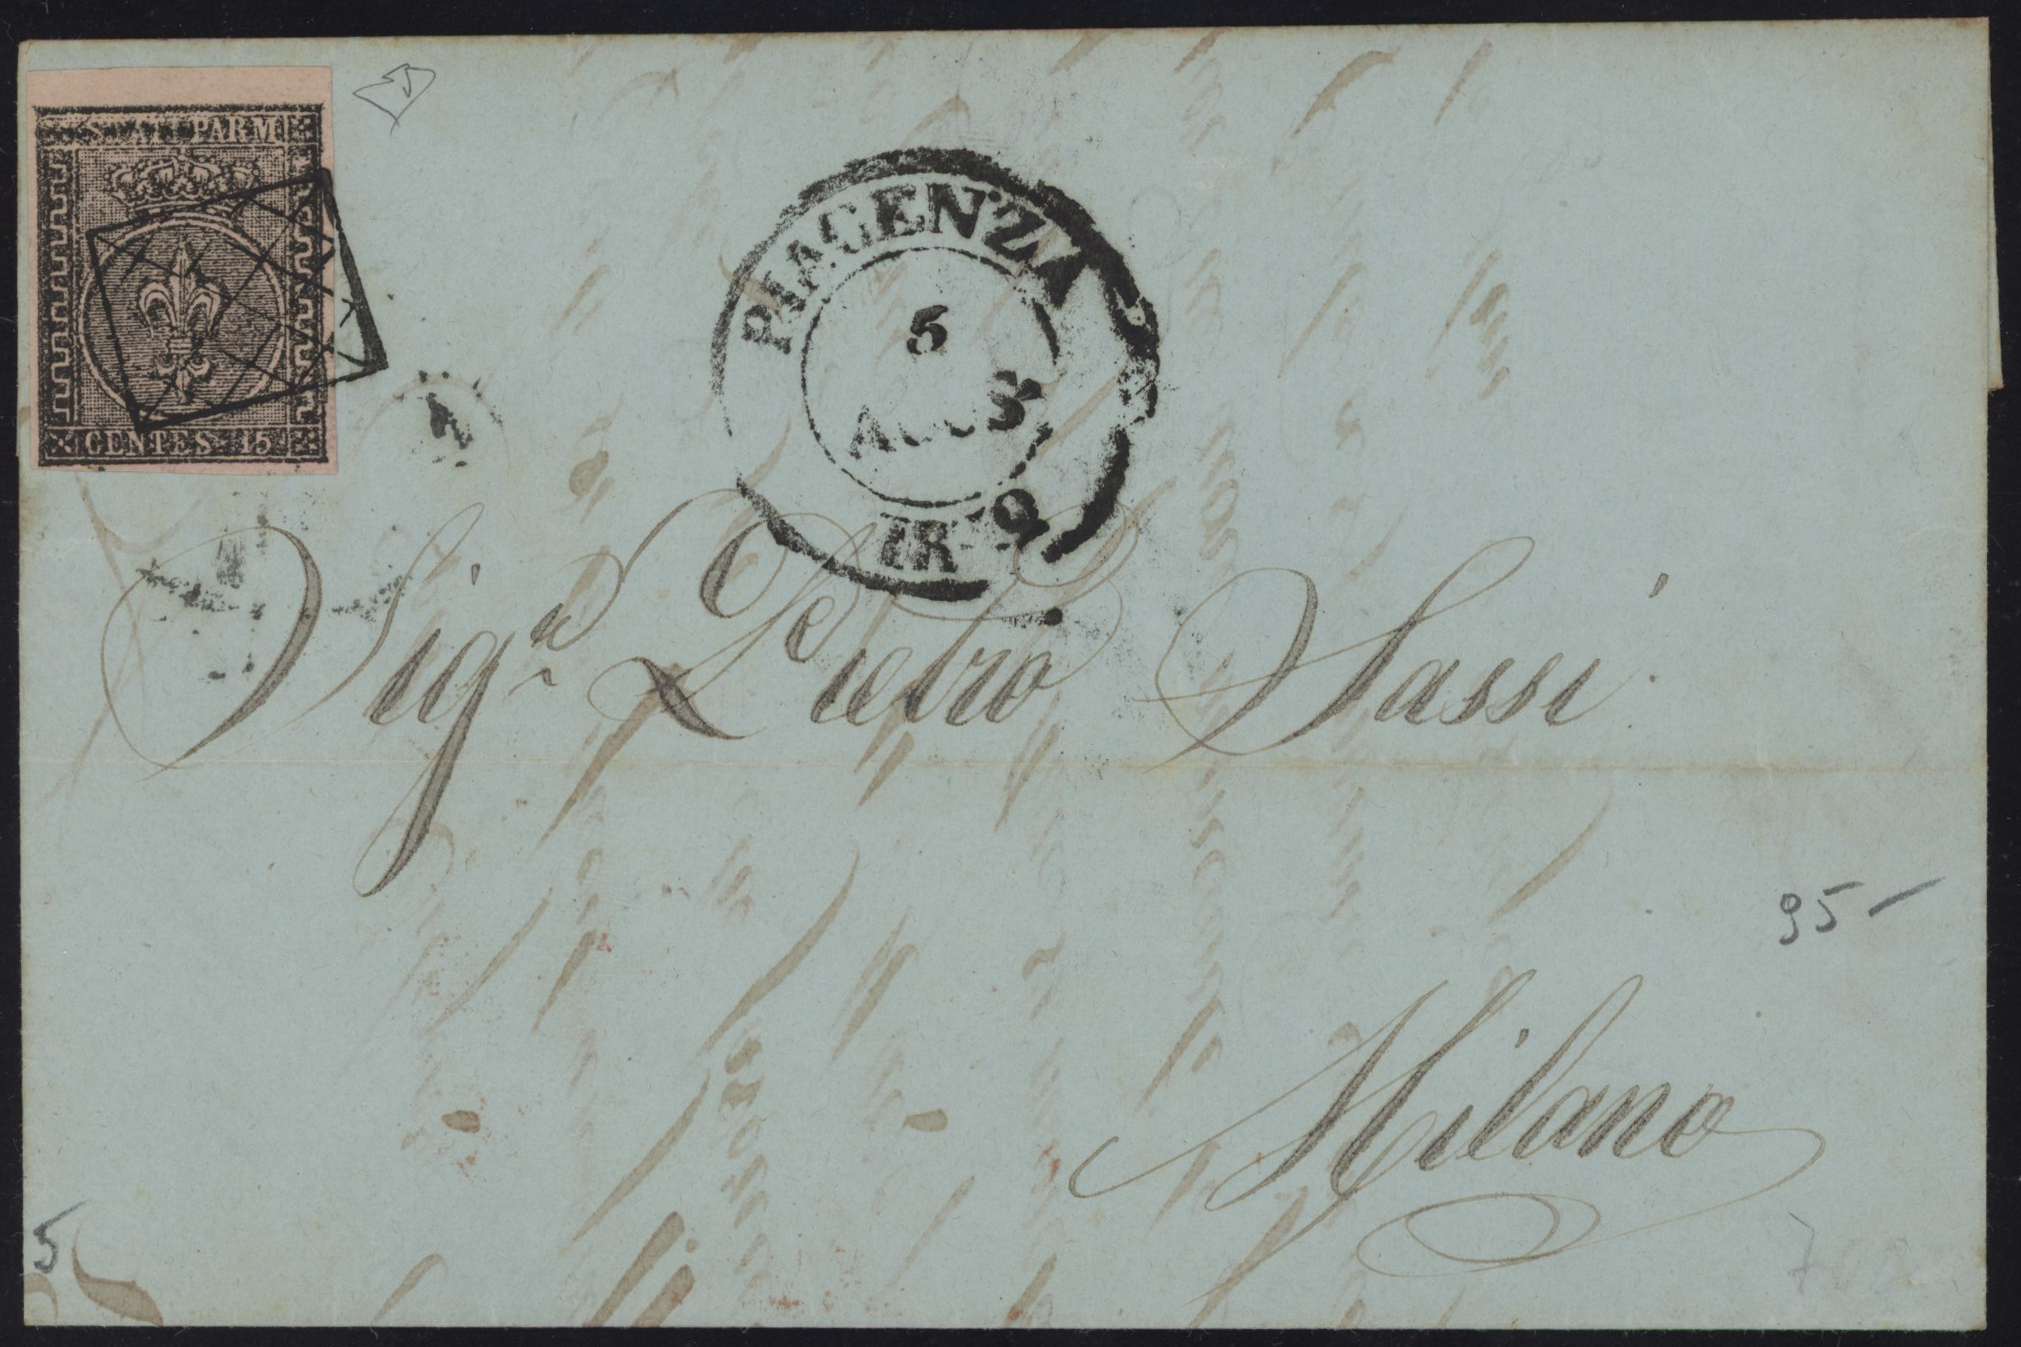 STATI PARM:
CENTES. 15
PIACENZA
5
AGOS
Sigr Pietro Sassi
95-
Milano
5